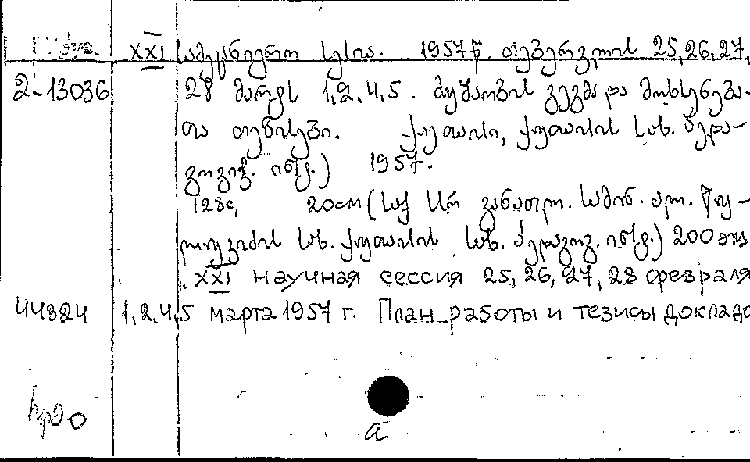 XXI სამეცნიერო სესია. 1957 წ. თებერვლის 25,26,27,
2-13036 28 მარტს 1,2,4,5. მუშაობის გეგმა და მოხსენება-
თა თეზისები. ქუთაისი, ქუთაისის სახ. პედა-
გოგიკ. ინსტ.) 1957.
128გ, 20სმ (საქ სსრ განათლ. სამინ. ალ. წუ-
ლუკიძის სახ. ქუთაისის სახ. პედაგოგ. ინსტ.) 200
XXI научная сессия 25, 26, 27, 28 февраля
44824 1,2,4,5 марта 1957 г. План работы и тезисы доклado
a